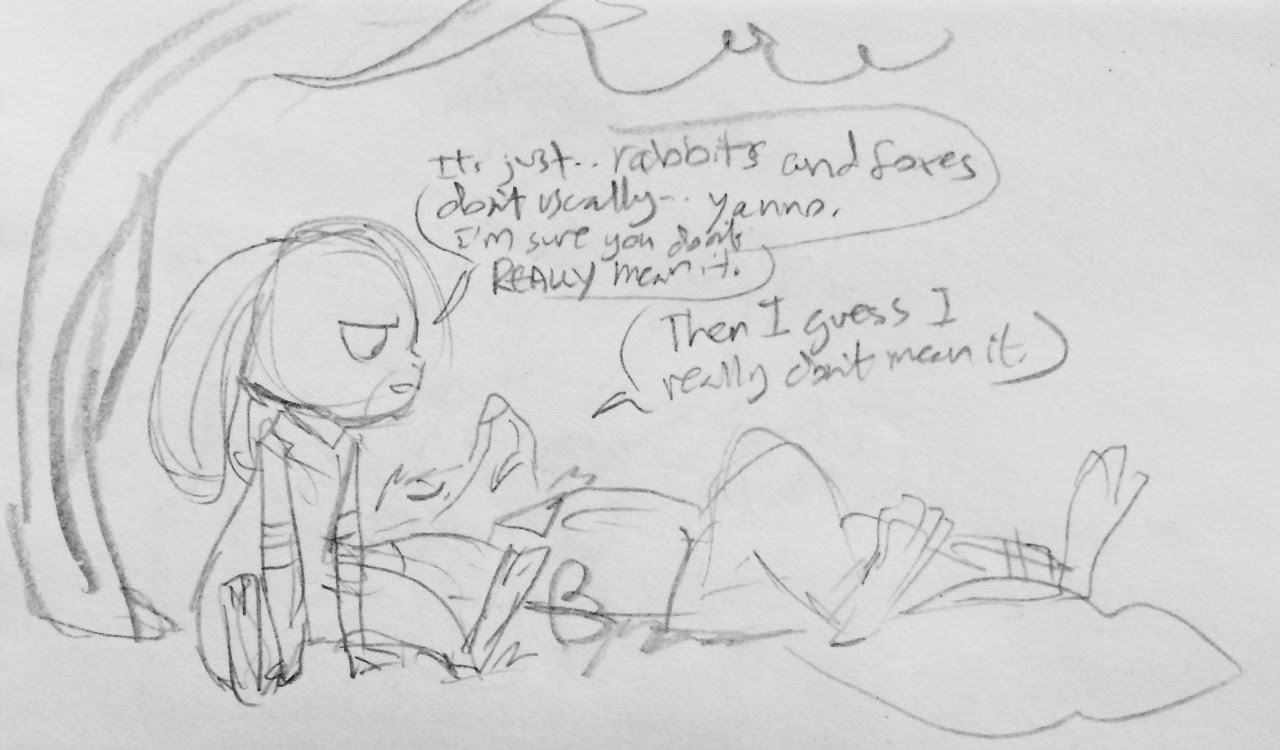 It's just.. rabbits and foxes
don't usually... yanno.
I'm sure you don't
REALLY mean it.
Then I guess I
really don't mean it.